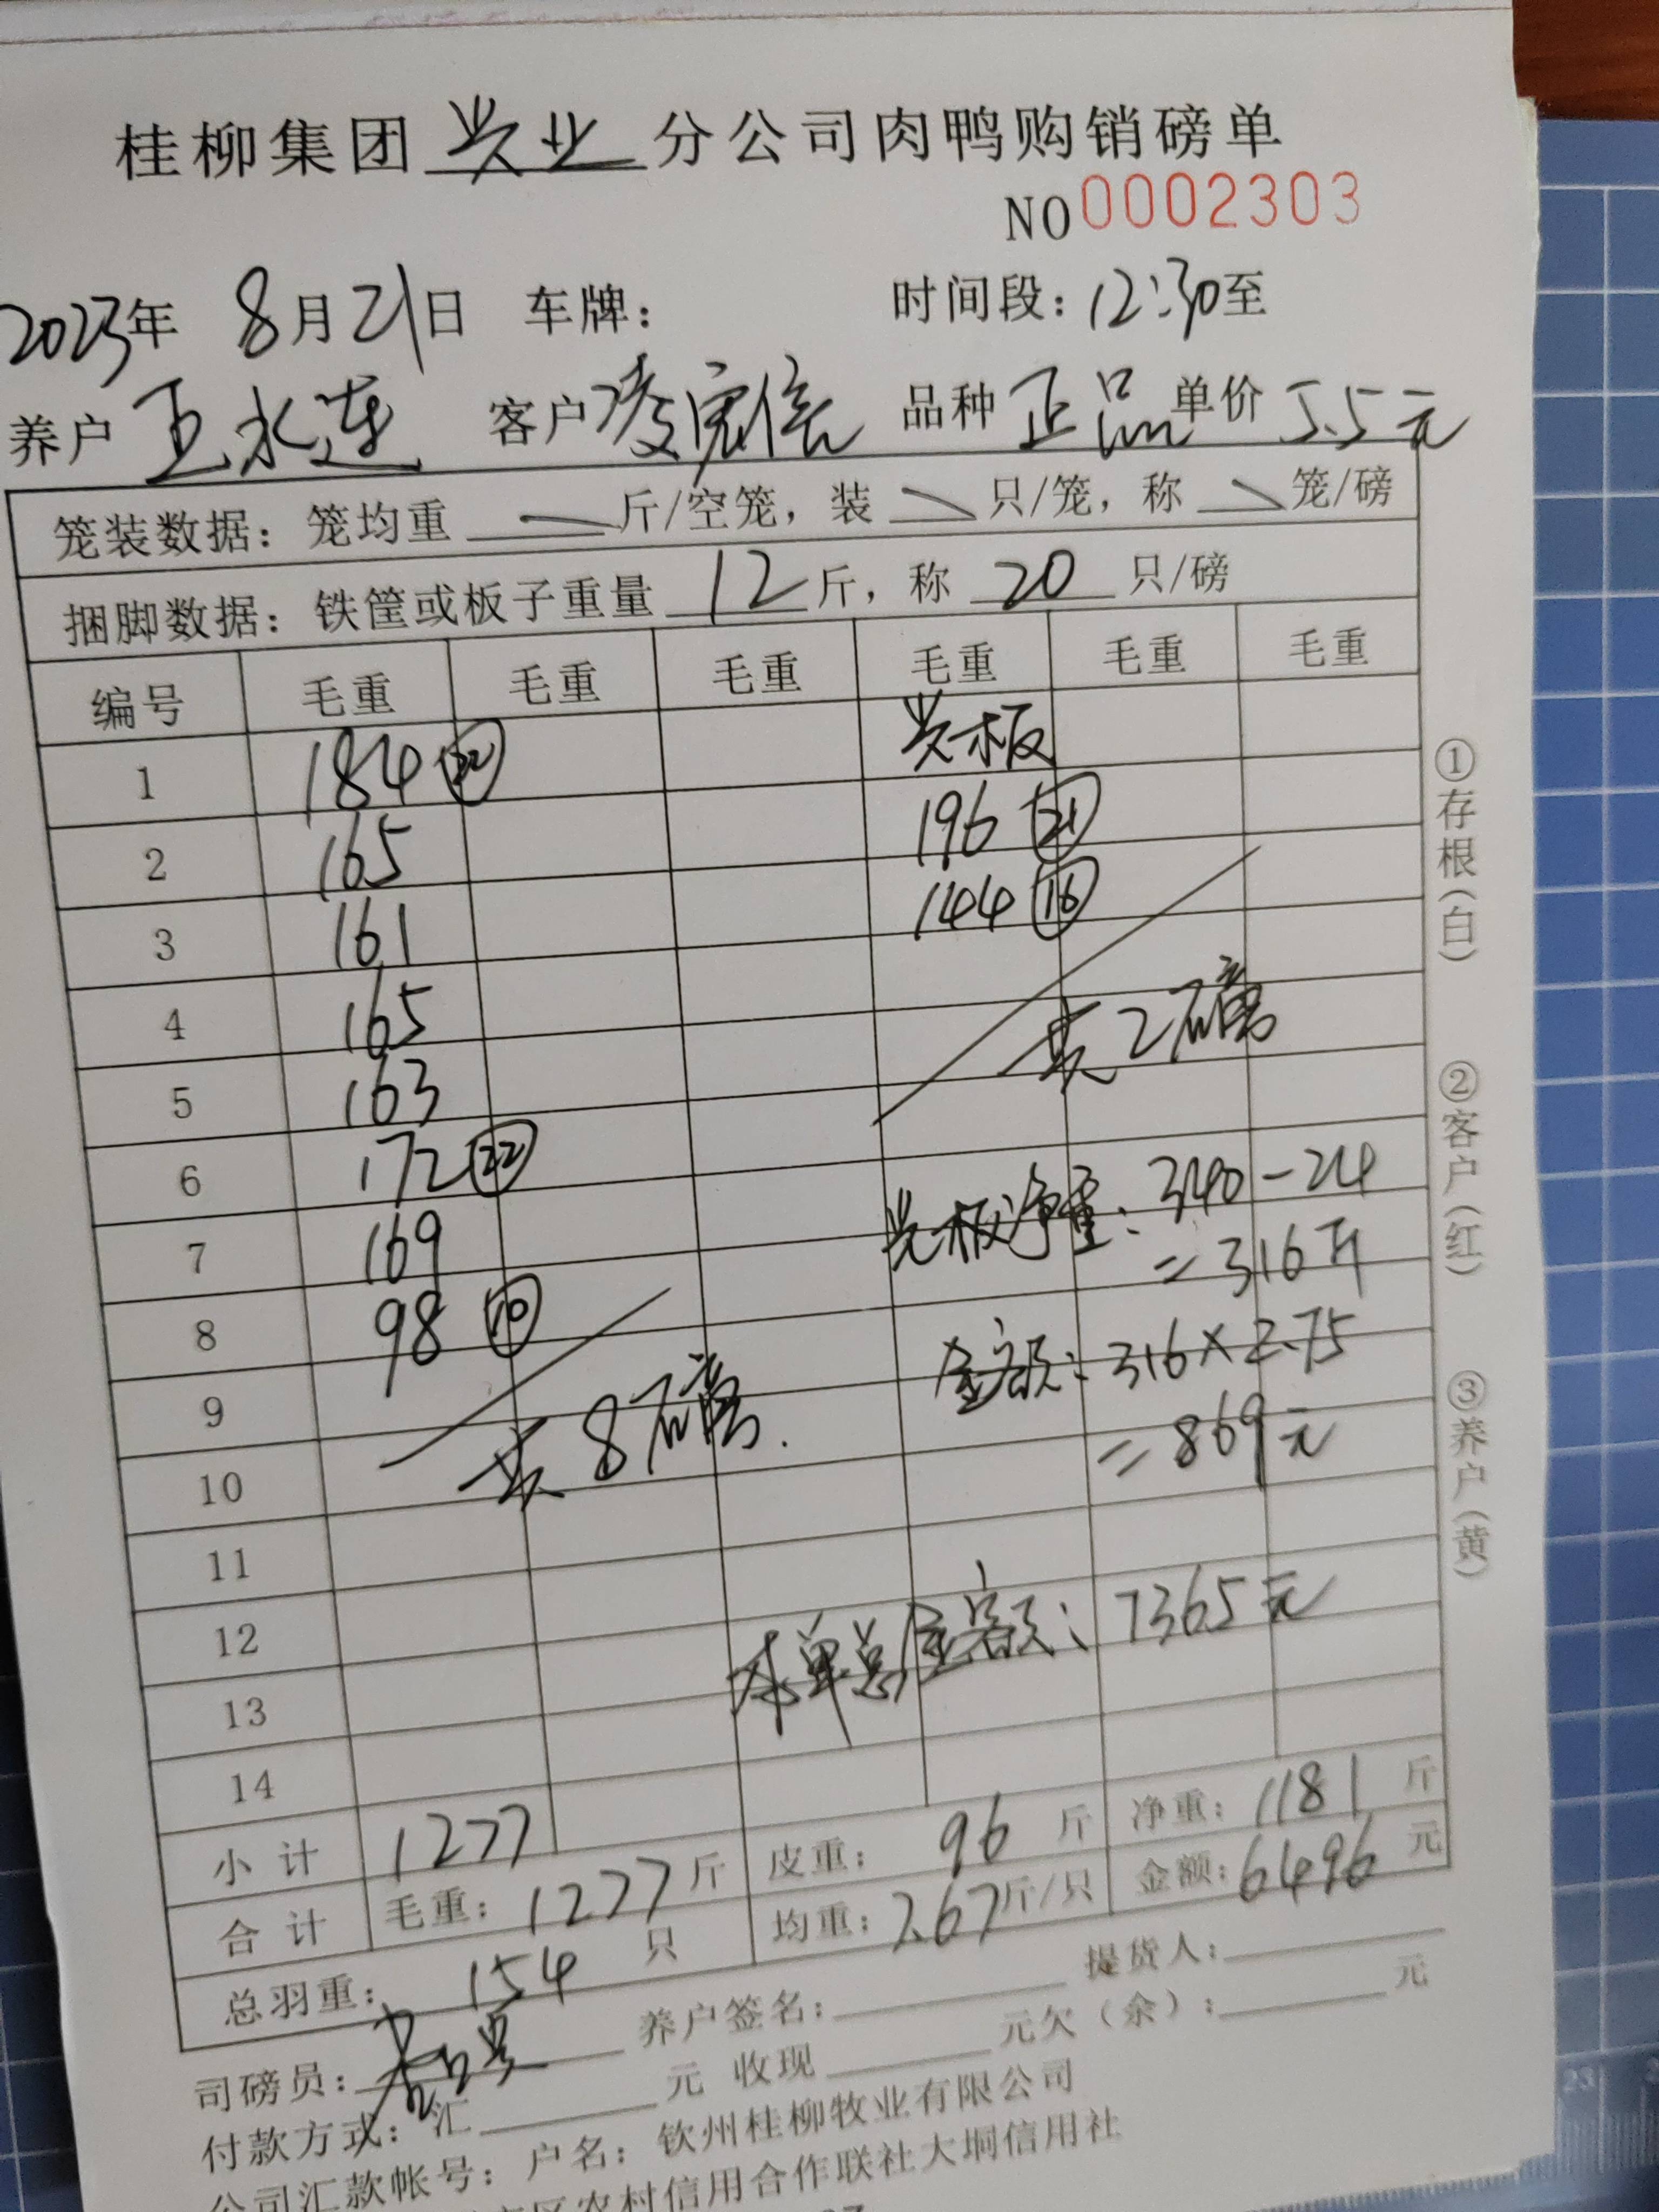 桂柳集团 兴业 分公司肉鸭购销磅单
NO 0002303
2023年 8月21日 车牌： 时间段：12:30至
养户 王永莲 客户 凌宽信 品种 正品 单价 5.5元
笼装数据：笼均重 斤/空笼，装 只/笼，称 笼/磅
捆脚数据：铁筐或板子重量 12 斤，称 20 只/磅
编号 毛重 毛重 毛重 毛重 毛重 毛重
1 184 ㉒ 光板
2 165 196 ㉑
3 161 144 ⑯
4 165 共2磅
5 163
6 172 ㉒
7 169 光板净重：340-24
=316斤
8 98 ⑩ 金额：316×2.75
9 共8磅. =869元
10
11
12 本单总金额：7365元
13
14
小计 1277 皮重：96斤 净重：1181斤
合计 毛重：1277斤 均重：7.67斤/只 金额：6496元
总羽重：154 只
司磅员： 养户签名： 提货人：
付款方式：汇 元 收现 元欠（余）： 元
公司汇款帐号：户名：钦州桂柳牧业有限公司
区农村信用合作联社大垌信用社
①存根（白）
②客户（红）
③养户（黄）
23